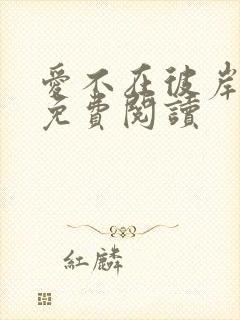 愛不在彼岸
免費閱讀
紅麟